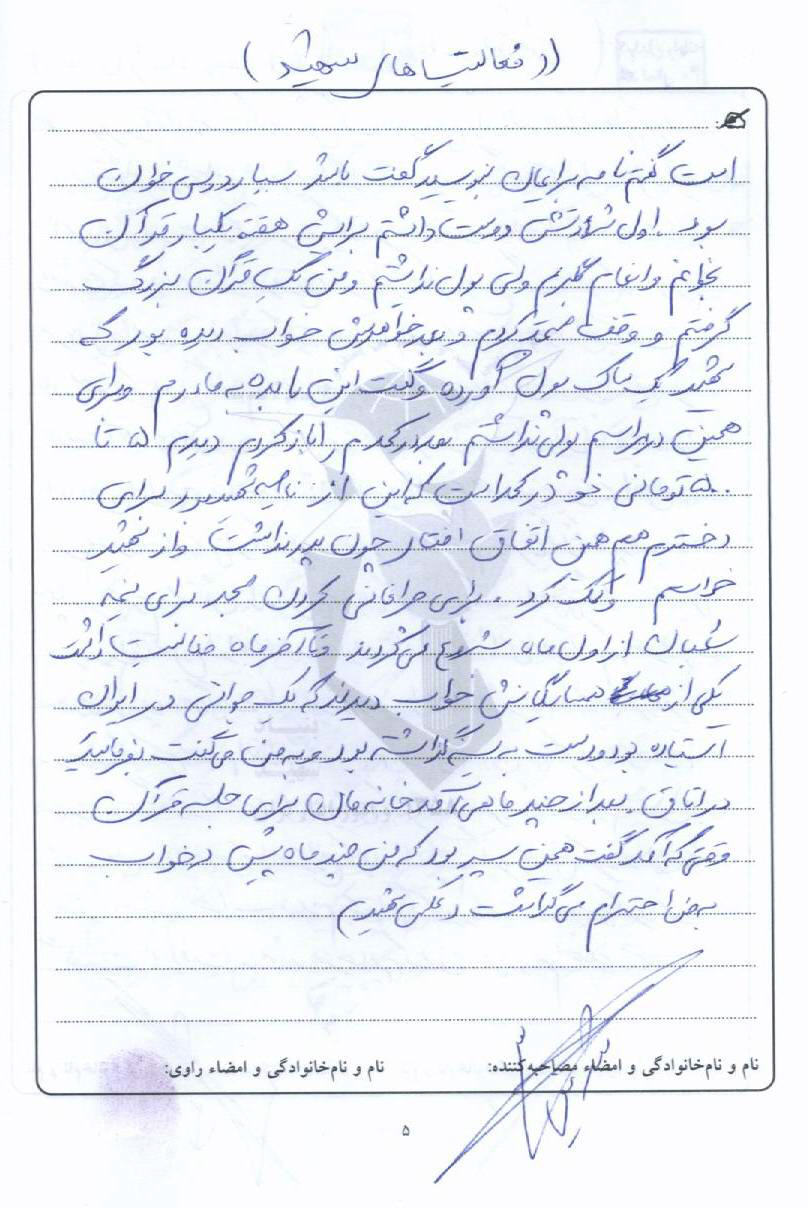 ((فعالیتهای شهید))
است گفتم نامه برایمان بنویسید گفت باشد بسیار درس خوان
بود. اول شهادتش دوست داشتم برایش هفته یکبار قرآن
بخوانم و انعام بگیرم ولی پول نداشتم و من یک قرآن بزرگ
گرفتم و وقف کردم و بعد خواهرش خواب دیده بود که
شهید یک پاک پول آورده و گفت این را بده به مادرم و برای
همین در مراسم پولی نداشتم بعد در کمدم را باز کردم دیدم ۵ تا
۵۰۰ تومانی نو در کمد است که این از ناحیه شهید بود برای
دخترم هم همین اتفاق افتاد چون پدر نداشت و از شهید
خواستم و کمک کرد. برای چراغانی کردن مسجد برای نیمه
شعبان از اول ماه شروع می‌کردند و تا آخر ماه فعالیت داشت
یکی از همسایگانش خواب دیدند که یک جوانی در ایوان
ایستاده بود و دست به سینه گذاشته بود و به من می‌گفت بفرمایید
در اتاق. بعد از چند ماهی آمد خانه مان برای جلسه قرآن
وقتی که آمد گفت همین پسر بود که من چند ماه پیش در خواب
به من احترام می‌گذاشت و عکس شهیدم
نام و نام‌خانوادگی و امضاء مصاحبه‌کننده:
نام و نام‌خانوادگی و امضاء راوی:
۵